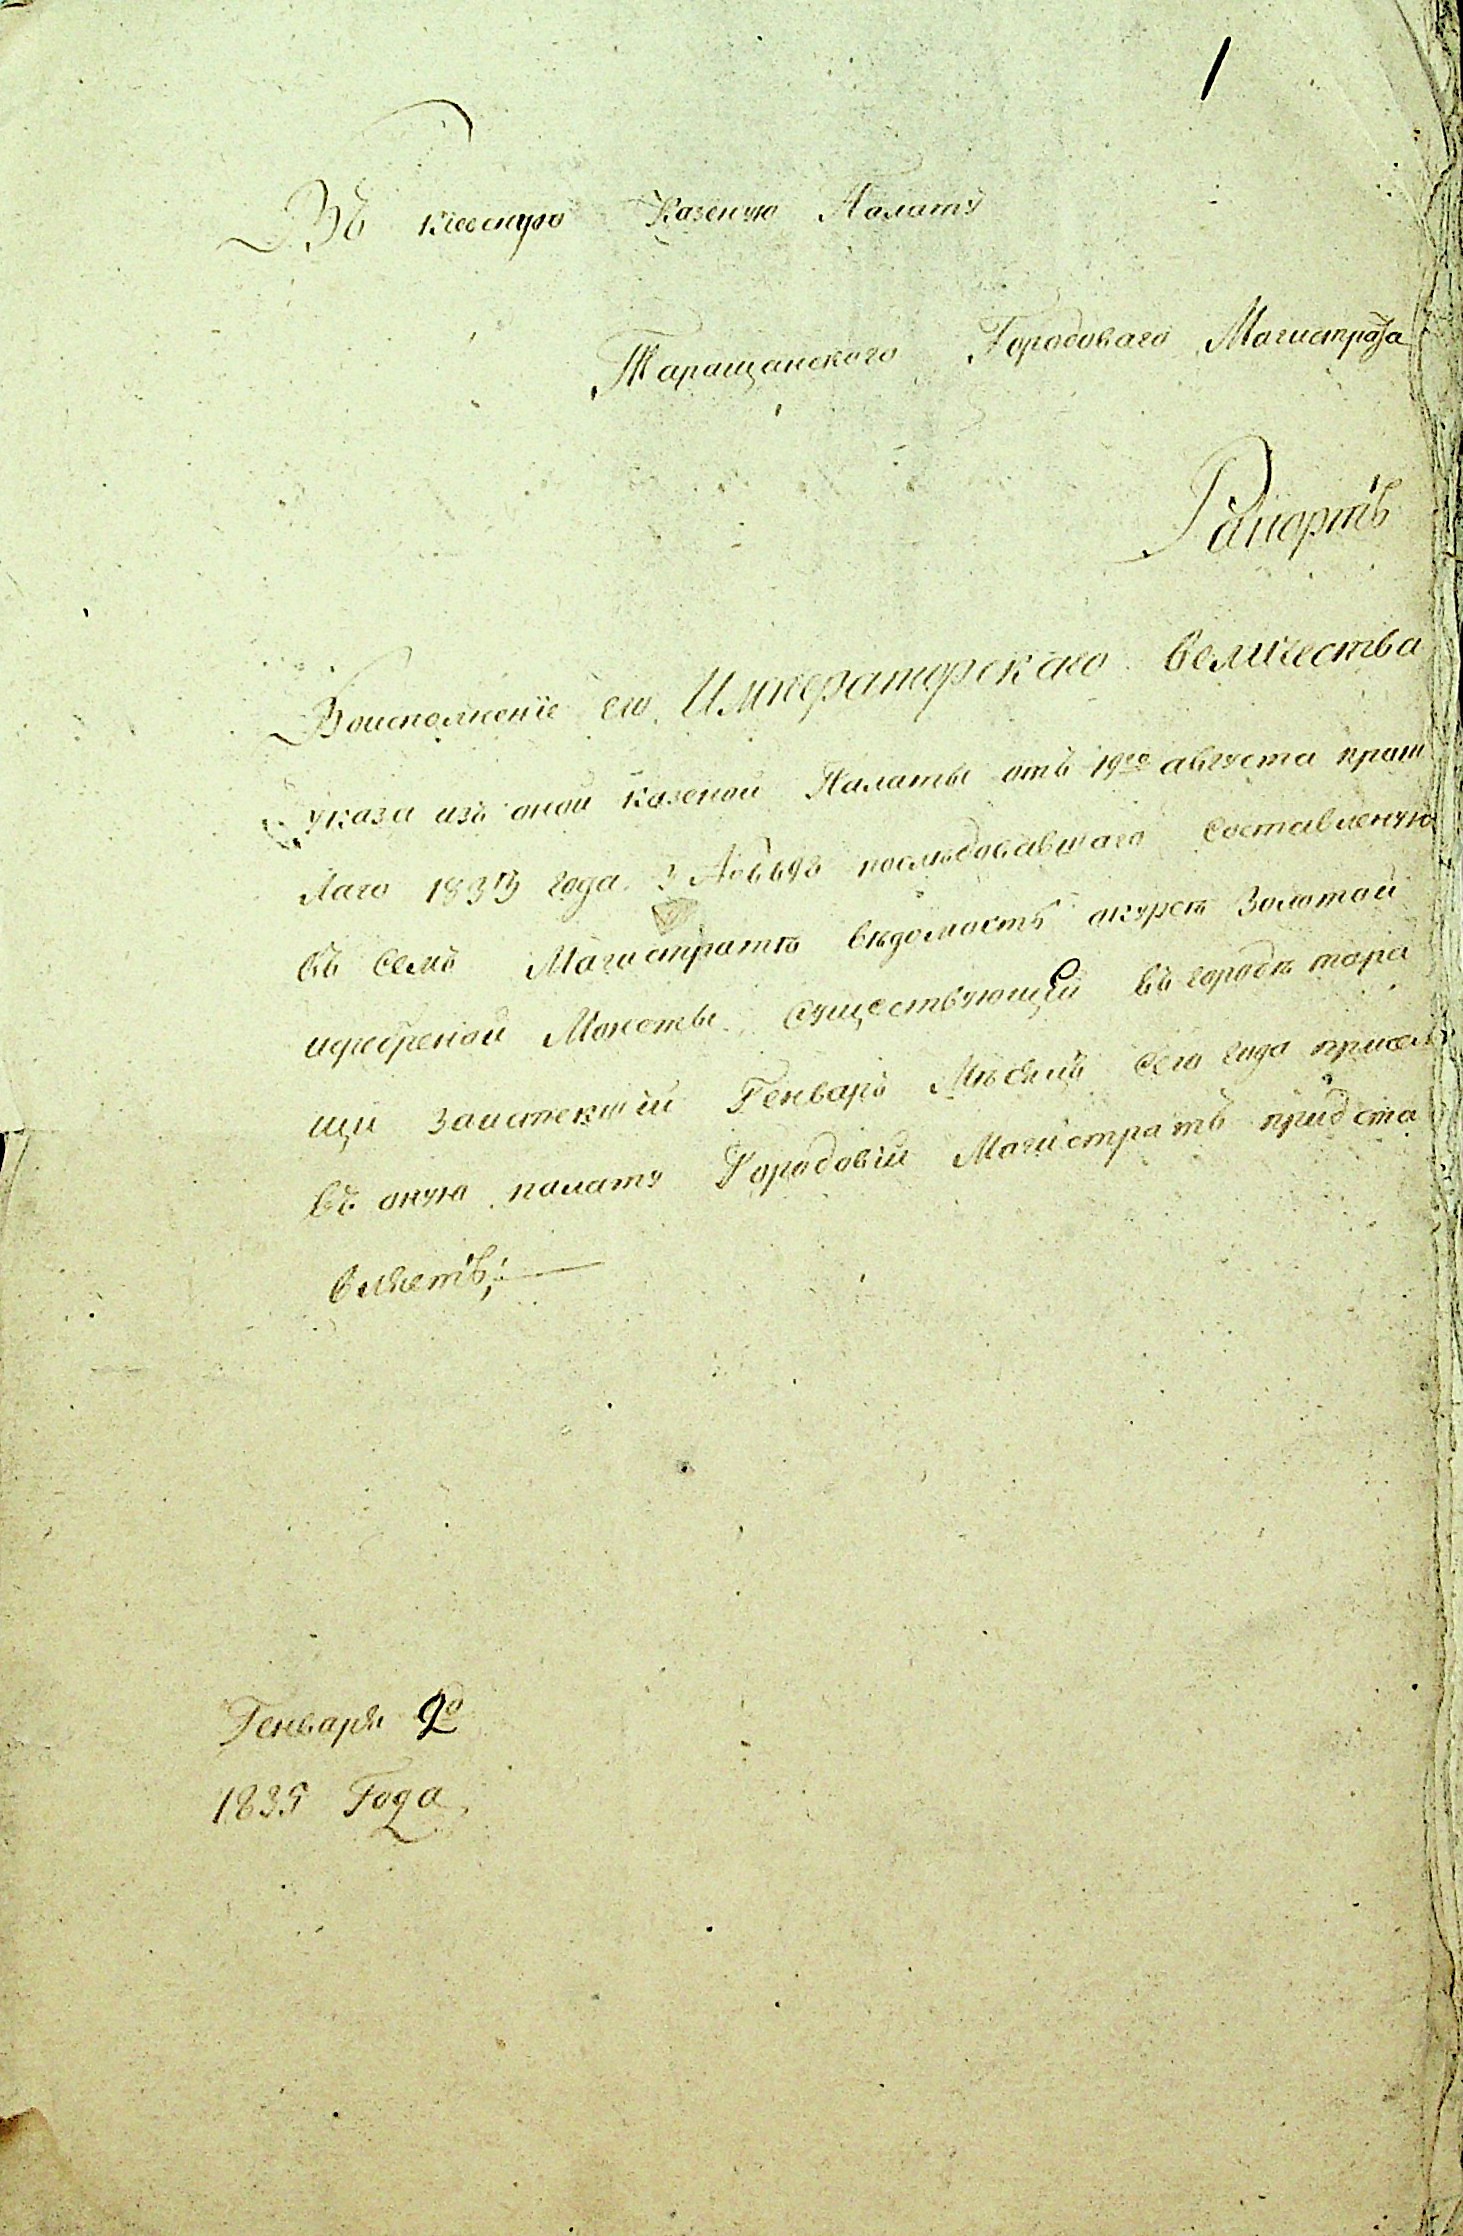 1
Въ киевскую Казеную Палату
Таращанского Городоваго Магистрата
Рапортъ
Воисполнение его Императорскаго величества
указа изъ оной казеной Палаты отъ 19го августа прош
лаго года последовавшаго составленую
въ семъ Магистратѣ вѣдомость окурсѣ Золотой
исребреной Монеты существующей въ городѣ тара
щи заистекший Генварь Мѣсяцъ сего года присемъ
въ оную палату Городовій Магистратъ предста
вляетъ;
Генваря
1835 Года